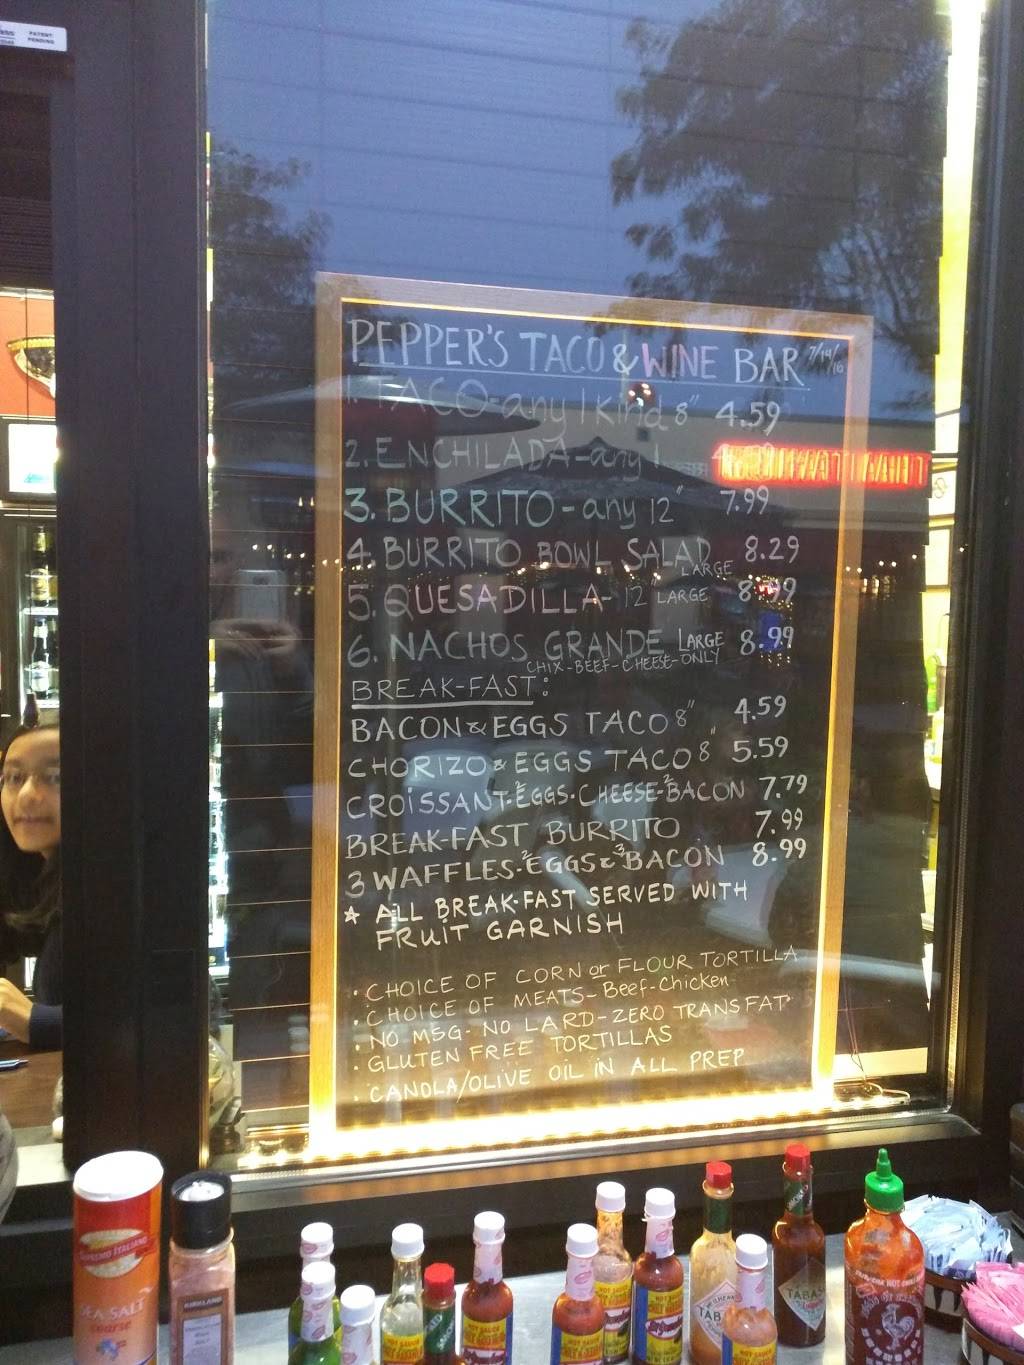 PATENT
PENDING
PEPPER'S TACO & WINE BAR 7/14/16
1. TACO-any 1 kind 8" 4.59
2. ENCHILADA-any 1
3. BURRITO-any 12" 7.99
4. BURRITO BOWL SALAD 8.29
LARGE
5. QUESADILLA-12 LARGE 8.99
6. NACHOS GRANDE LARGE 8.99
CHIX-BEEF-CHEESE-ONLY
BREAK-FAST:
BACON & EGGS TACO 8" 4.59
CHORIZO & EGGS TACO 8" 5.59
CROISSANT-2EGGS-CHEESE-2BACON 7.79
BREAK-FAST BURRITO 7.99
3 WAFFLES-2EGGS & 3BACON 8.99
★ ALL BREAK-FAST SERVED WITH
FRUIT GARNISH
• CHOICE OF CORN or FLOUR TORTILLA
• CHOICE OF MEATS-Beef-Chicken
• NO MSG-NO LARD-ZERO TRANSFAT
• GLUTEN FREE TORTILLAS
• CANOLA/OLIVE OIL IN ALL PREP
SEA SALT
coarse
KIRKLAND
TABASCO